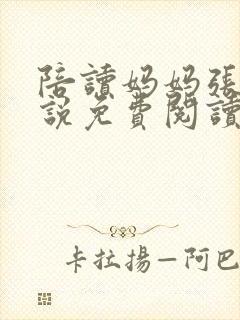 陪讀媽媽張
說免費閱讀
卡拉揚—阿巴